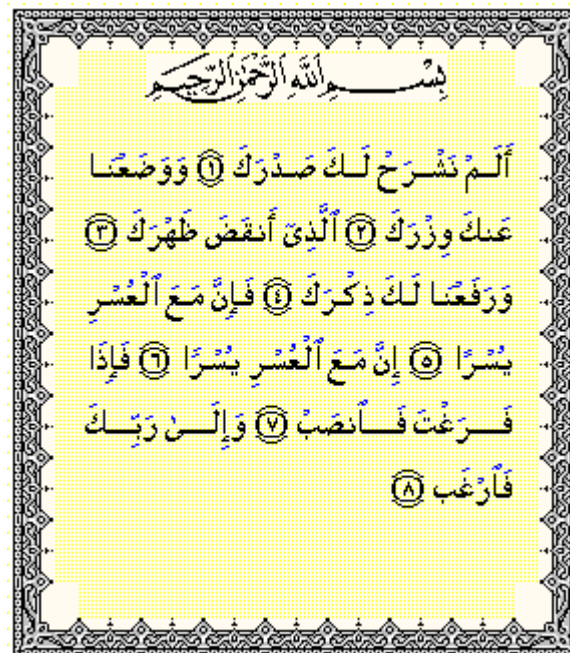 بِسْمِ اللَّهِ الرَّحْمَٰنِ الرَّحِيمِ
أَلَمْ نَشْرَحْ لَكَ صَدْرَكَ ١ وَوَضَعْنَا
عَنكَ وِزْرَكَ ٢ ٱلَّذِىٓ أَنقَضَ ظَهْرَكَ ٣
وَرَفَعْنَا لَكَ ذِكْرَكَ ٤ فَإِنَّ مَعَ ٱلْعُسْرِ
يُسْرًا ٥ إِنَّ مَعَ ٱلْعُسْرِ يُسْرًا ٦ فَإِذَا
فَرَغْتَ فَٱنصَبْ ٧ وَإِلَىٰ رَبِّكَ
فَٱرْغَب ٨